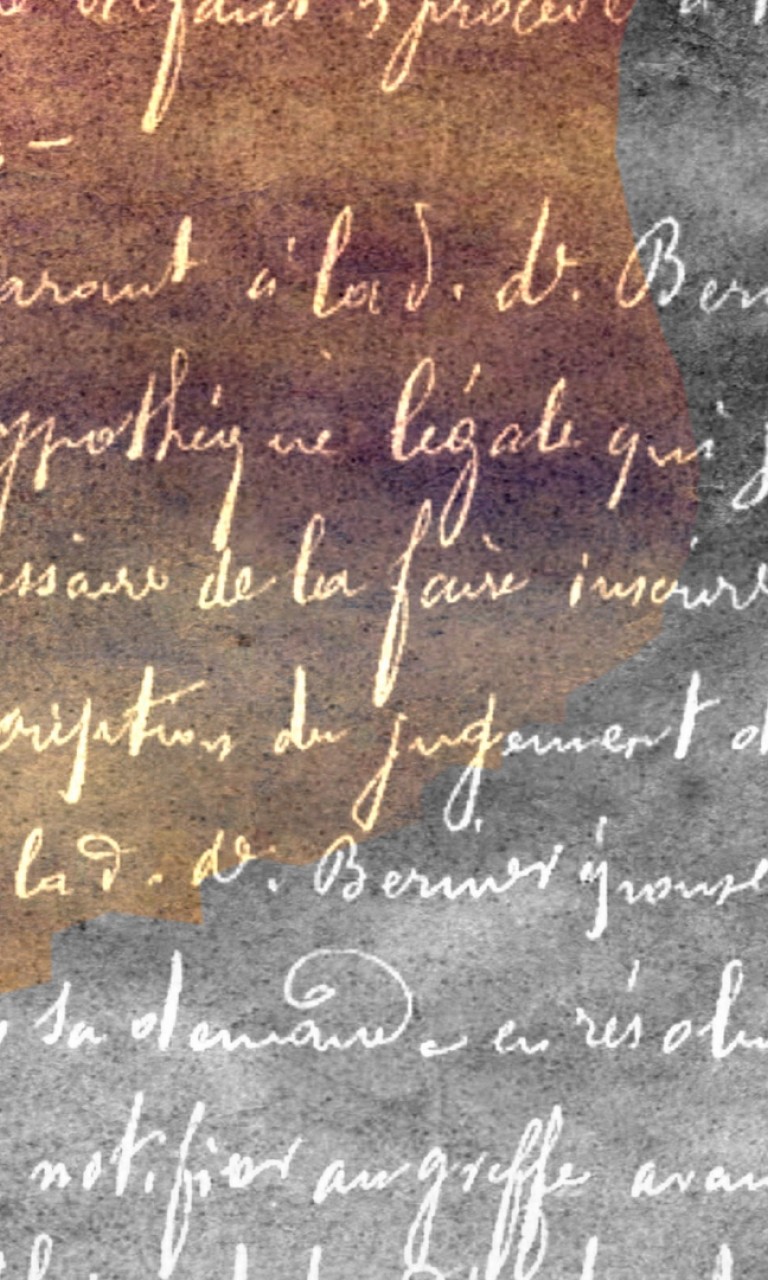 procéd
à lad. de. Ber
hypothèque légale qui j
essaire de la faire inscrire
cription du jugement d
lad. de. Bernier épouse
sa demande en résolu
notifier au greffe avan